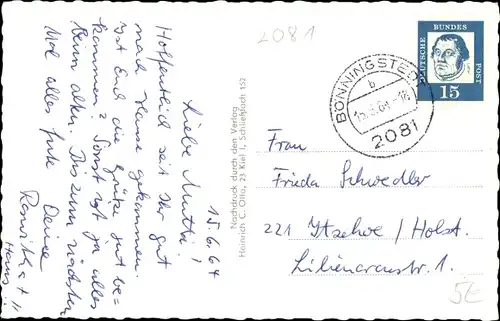 2081
15.6.64
Liebe Mutti!
Hoffentlich seit Ihr gut
nach Hause gekommen.
Ist Euch die Grütze gut be-
kommen? Sonst ist ja alles
beim alten. Bis zum nächsten
Mal alles Gute Deine
Hans
Nachdruck durch den Verlag
Heinrich C. Otto, 23 Kiel 1, Schließfach 152
BÖNNINGSTEDT
b
15.6.64-18
2081
DEUTSCHE
BUNDES
POST
15
Frau
Frieda Schwedler
221 Itzehoe / Holst.
Liliencronstr. 1.
5€